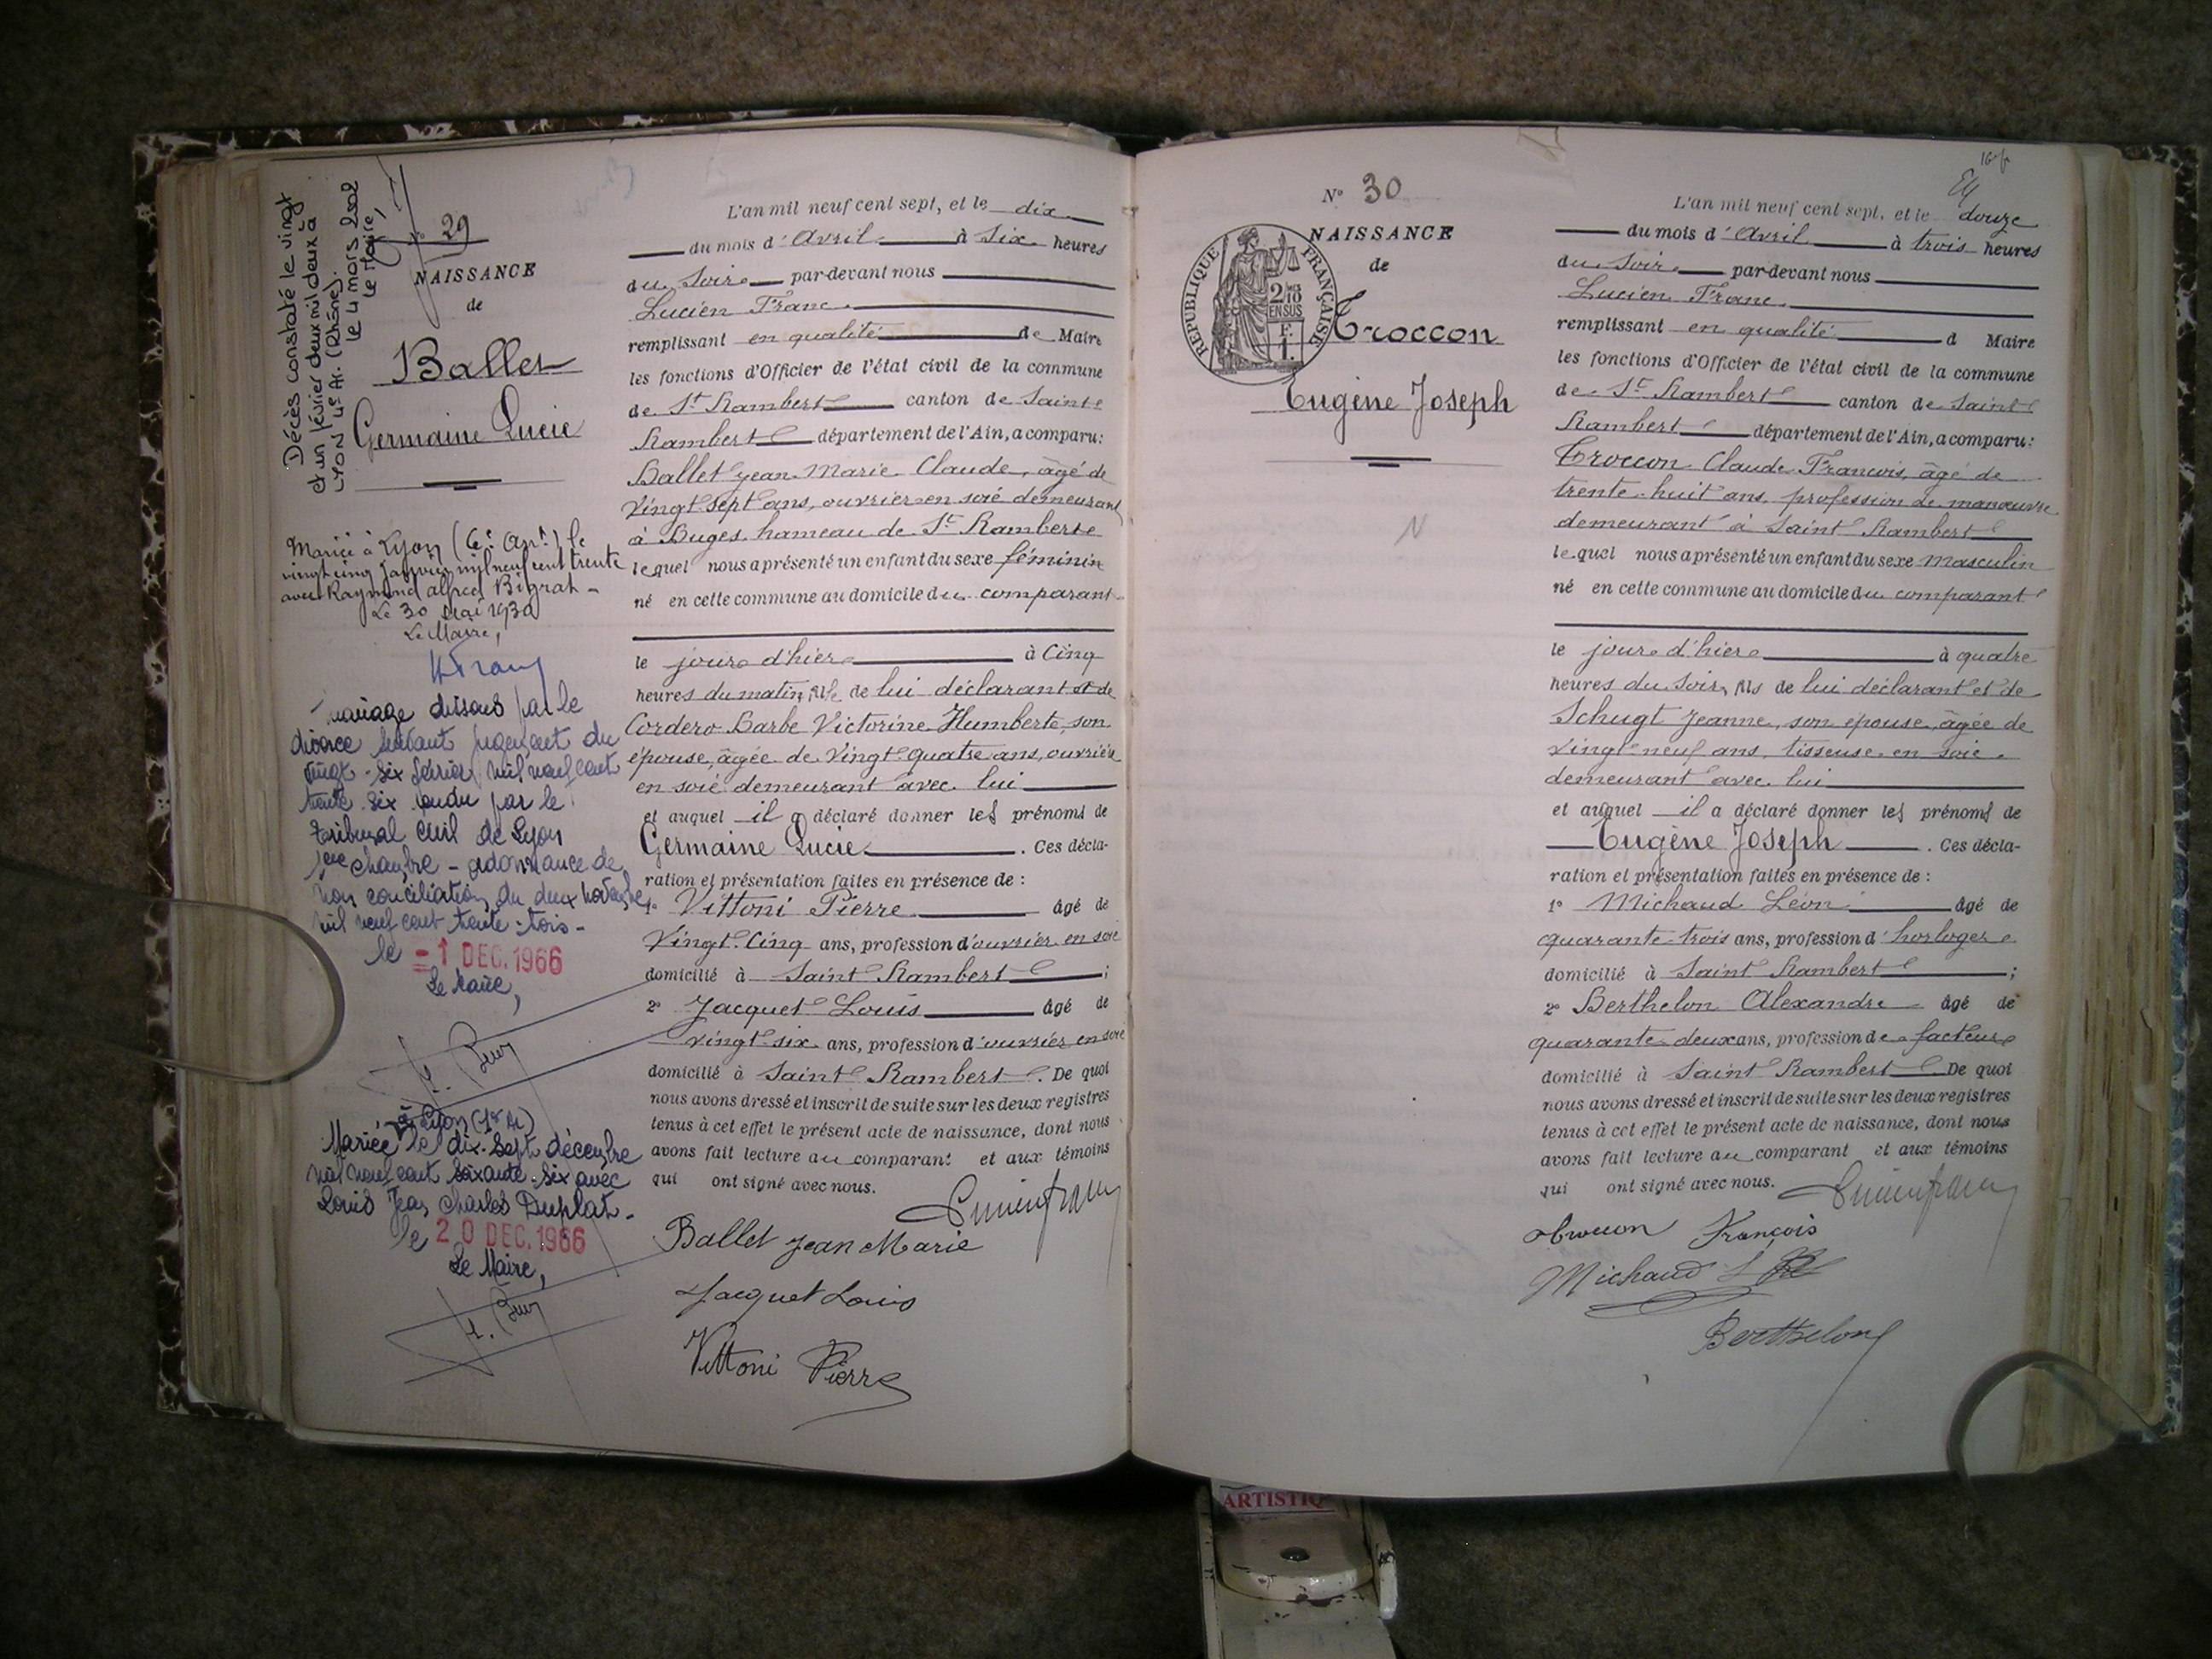 Décès constaté le vingt
et un février deux mil deux à
LYON 4e Ar. (Rhône).
le 4 mars 2002
le Maire,
N° 29
NAISSANCE
de
Ballet
Germaine Lucie
Mariée à Lyon (6e Arrt) le
vingt cinq janvier mil neuf cent trente
avec Raymond Alfred Bigrat -
Le 30 Mai 1930
Le Maire,
mariage dissous par le
divorce suivant jugement du
vingt-six février mil neuf cent
trente six rendu par le
tribunal civil de Lyon
1ère chambre - ordonnance de
non conciliation du deux novembre
mil neuf cent trente-trois -
le -1 DEC. 1966
Le Maire,
à Lyon (1er Ar)
Mariée le dix-sept décembre
mil neuf cent soixante-six avec
Louis Jean Charles Duplat -
le 20 DEC. 1966
Le Maire,
L'an mil neuf cent sept, et le dix
du mois d'Avril à Six heures
du Soir par-devant nous
Lucien Franc
remplissant en qualité de Maire
les fonctions d'Officier de l'état civil de la commune
de St Rambert canton de Saint
Rambert département de l'Ain, a comparu:
Ballet Jean Marie Claude, âgé de
Vingt sept ans, ouvrier en soie demeurant
à Buges hameau de St Rambert
lequel nous a présenté un enfant du sexe féminin
né en cette commune au domicile du comparant
le jour d'hier à Cinq
heures du matin, fille de lui déclarant et de
Cordero Barbe Victorine Humberte, son
épouse, âgée de Vingt quatre ans, ouvrière
en soie demeurant avec lui
et auquel il a déclaré donner les prénoms de
Germaine Lucie. Ces décla-
ration et présentation faites en présence de :
1° Vittoni Pierre âgé de
Vingt-Cinq ans, profession d'ouvrier en soie
domicilié à Saint Rambert ;
2° Jacquet Louis âgé de
vingt six ans, profession d'ouvrier en soie
domicilié à Saint Rambert. De quoi
nous avons dressé et inscrit de suite sur les deux registres
tenus à cet effet le présent acte de naissance, dont nous
avons fait lecture au comparant et aux témoins
qui ont signé avec nous.
Lucien Franc
Ballet Jean Marie
Jacquet Louis
Vittoni Pierre
N° 30
NAISSANCE
de
RÉPUBLIQUE FRANÇAISE
2/10 EN SUS
F. 1.
Troccon
Eugène Joseph
N
L'an mil neuf cent sept, et le douze
du mois d'Avril à trois heures
du Soir par-devant nous
Lucien Franc
remplissant en qualité d Maire
les fonctions d'Officier de l'état civil de la commune
de St Rambert canton de Saint
Rambert département de l'Ain, a comparu:
Troccon Claude François, âgé de
trente-huit ans, profession de manœuvre
demeurant à Saint Rambert
lequel nous a présenté un enfant du sexe Masculin
né en cette commune au domicile du comparant
le jour d'hier à quatre
heures du Soir, fils de lui déclarant et de
Schugt Jeanne, son épouse, âgée de
vingt-neuf ans, tisseuse en soie
demeurant avec lui
et auquel il a déclaré donner les prénoms de
Eugène Joseph. Ces décla-
ration et présentation faites en présence de :
1° Michaud Léon âgé de
quarante-trois ans, profession d'horloger
domicilié à Saint Rambert ;
2° Berthelon Alexandre âgé de
quarante-deux ans, profession de facteur
domicilié à Saint Rambert De quoi
nous avons dressé et inscrit de suite sur les deux registres
tenus à cet effet le présent acte de naissance, dont nous
avons fait lecture au comparant et aux témoins
qui ont signé avec nous.
Lucien Franc
Troccon François
Michaud L
Berthelon
ARTISTIQ